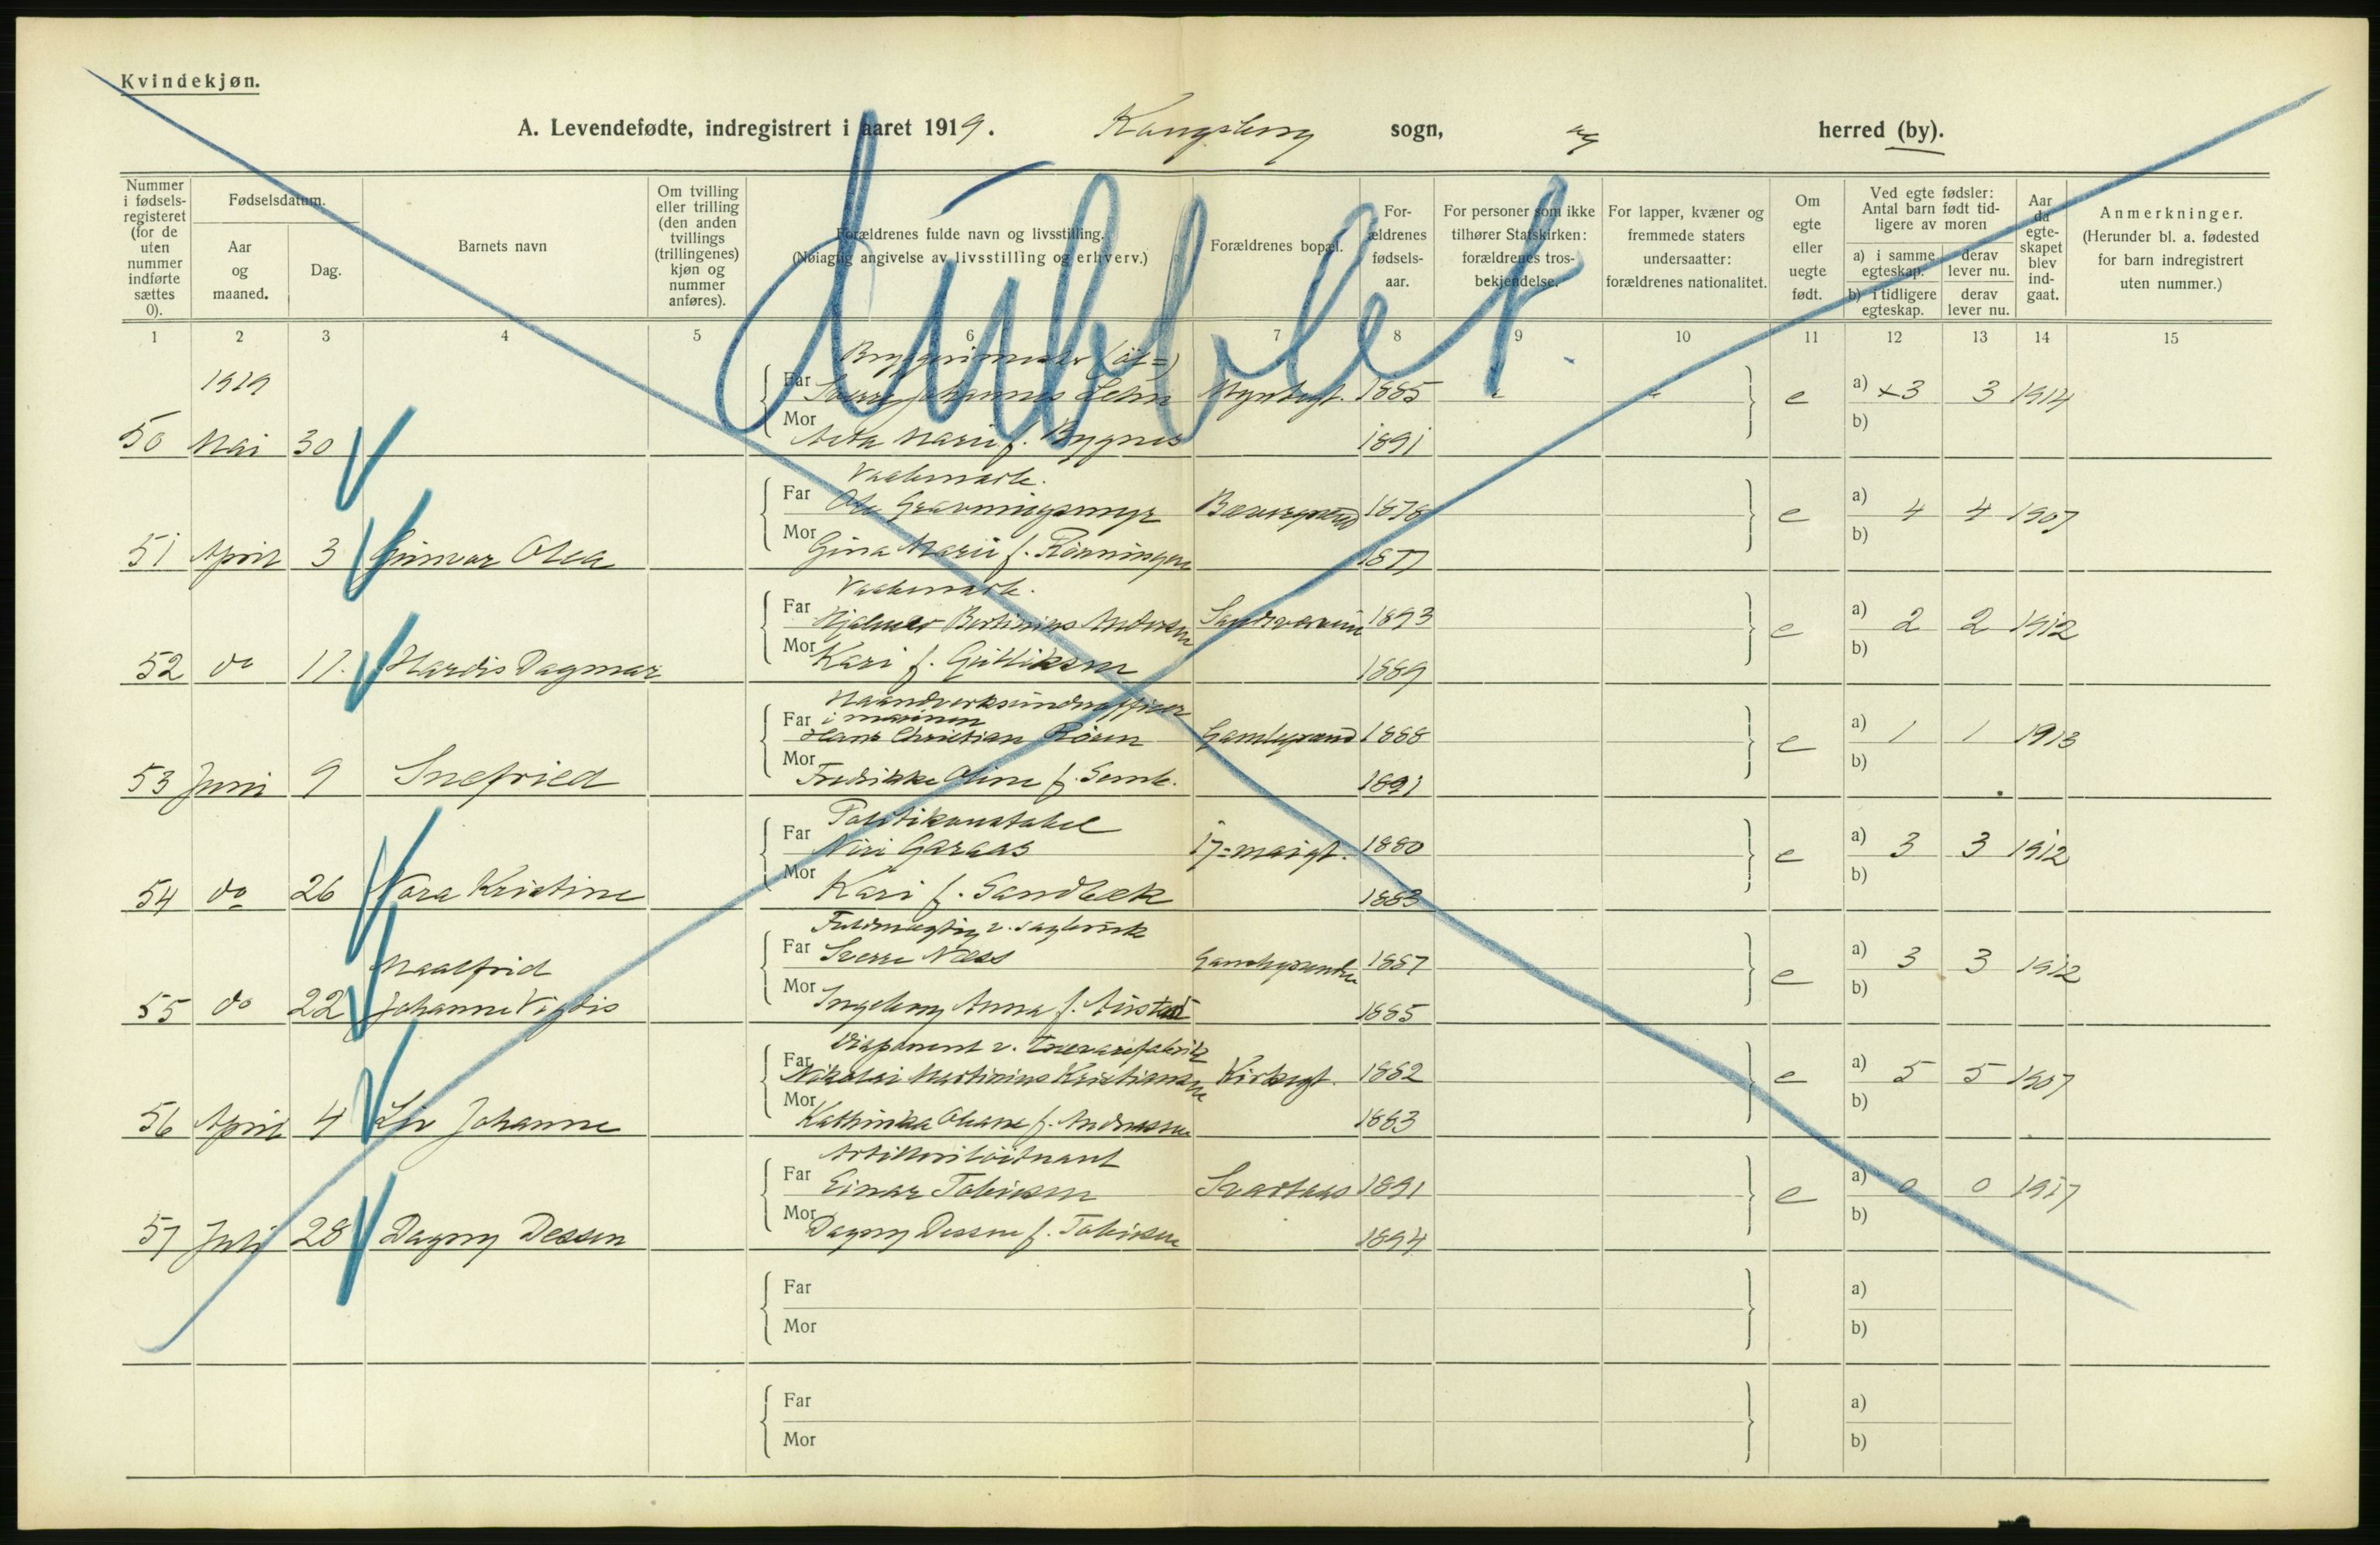 Kvindekjøn.
A. Levendefødte, indregistrert i aaret 1919. Kongsberg sogn, herred (by).
Dublet.
Nummer i fødsels-registeret (for de uten nummer indførte sættes 0).
Fødselsdatum.
Aar og maaned.
Dag.
Barnets navn
Om tvilling eller trilling (den anden tvillings (trillingenes) kjøn og nummer anføres).
Forældrenes fulde navn og livsstilling.
(Nøiagtig angivelse av livsstilling og erhverv.)
Forældrenes bopæl.
For-ældrenes fødsels-aar.
For personer som ikke tilhører Statskirken: forældrenes tros-bekjendelse.
For lapper, kvæner og fremmede staters undersaatter: forældrenes nationalitet.
Om egte eller uegte født.
Ved egte fødsler: Antal barn født tid-ligere av moren
a) i samme egteskap.
derav lever nu.
b) i tidligere egteskap.
derav lever nu.
Aar da egte-skapet blev ind-gaat.
Anmerkninger.
(Herunder bl. a. fødested for barn indregistrert uten nummer.)
1 2 3 4 5 6 7 8 9 10 11 12 13 14 15
1919
Far Johannes Myntgt. 1885 " " e a) x3 3 1914
b)
50 Mai 30 Mor Marie f. Bygnes 1891
Far Ole 1878 e a) 4 4 1907
b)
51 April 3 Gunvor Olea Mor Gina Marie f. Rønningen 1877
Far Hjalmar Bertinius Andersen Sandsværvn 1893 e a) 2 2 1912
b)
52 do 17. Hardis Dagmar Mor Kari f. Gulliksen 1889
Haandverksunderofficer
i marinen
Far Hans Christian Gamlegrend 1888 e a) 1 1 1913
b)
53 Juni 9 Snefried Mor Fredrikke Oline f. 1891
Politikonstabel
Far Garaas 17=maigt. 1880 e a) 3 3 1912
b)
54 do 26 Nora Kristine Mor Kari f. Sandbæk 1883
Fuldmægtig v.
Far Sverre Næss 1887 e a) 3 3 1912
b)
Maalfrid
55 do 22 Johanne Vigdis Mor Ingeborg Anna f. 1885
Disponent v. Trævarefabrik
Far Nikolai Martinius Kristiansen Kirkegt. 1882 e a) 5 5 1907
b)
56 April 4 Liv Johanne Mor Kathinka Oleane f. Andreassen 1883
Artilleriløitnant
Far Einar Tobiesen Svartaas 1891 e a) 0 0 1917
b)
57 Juli 28 Dagny Dessen Mor Dagny Dessen f. Tobiesen 1894
Far a)
Mor b)
Far a)
Mor b)